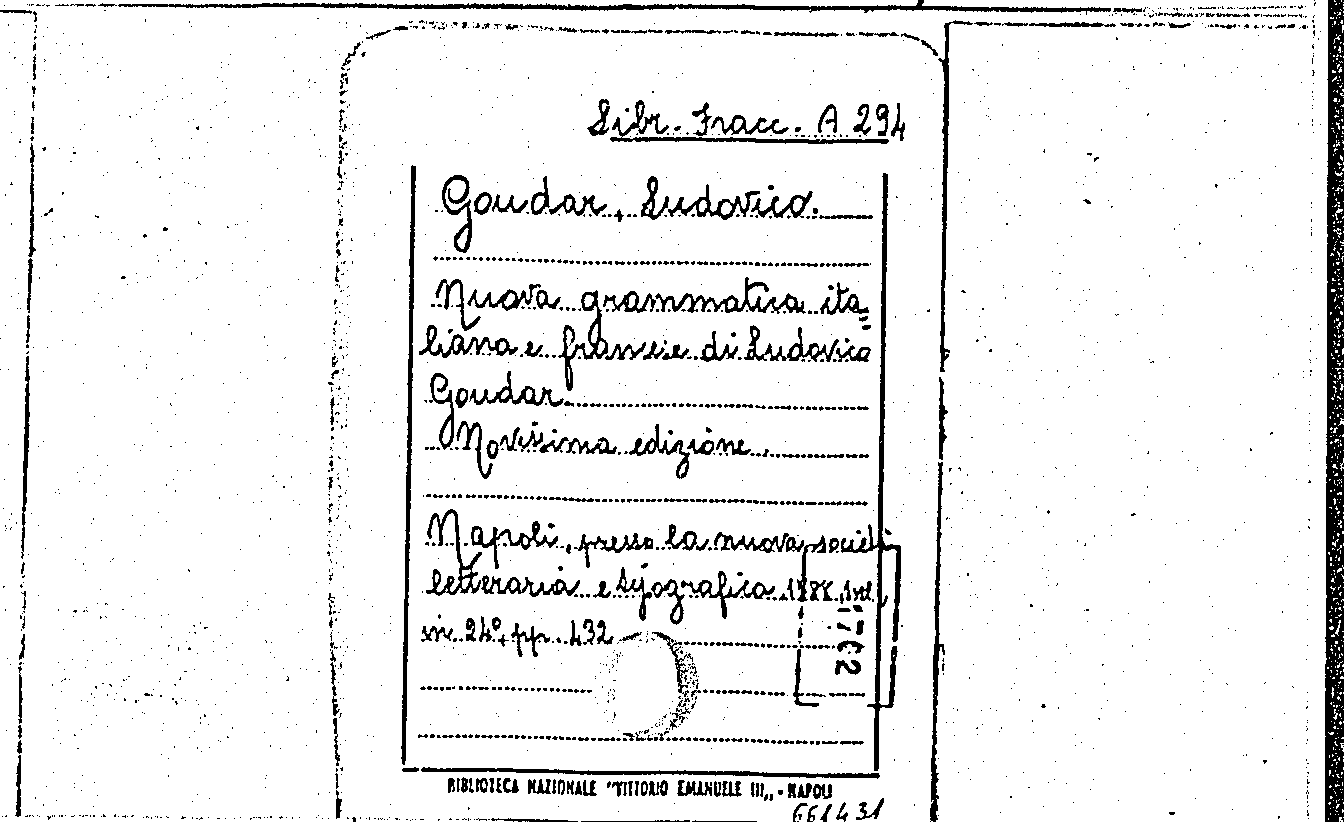 Libr. Fracc. A 294
Goudar, Ludovico.
Nuova grammatica ita=
liana e francese di Ludovico
Goudar.
Novissima edizione.
Napoli, presso la nuova società
letteraria e tipografica 1888, 1 vol,
in 24°, pp. 432
BIBLIOTECA NAZIONALE "VITTORIO EMANUELE III„ - NAPOLI
661431